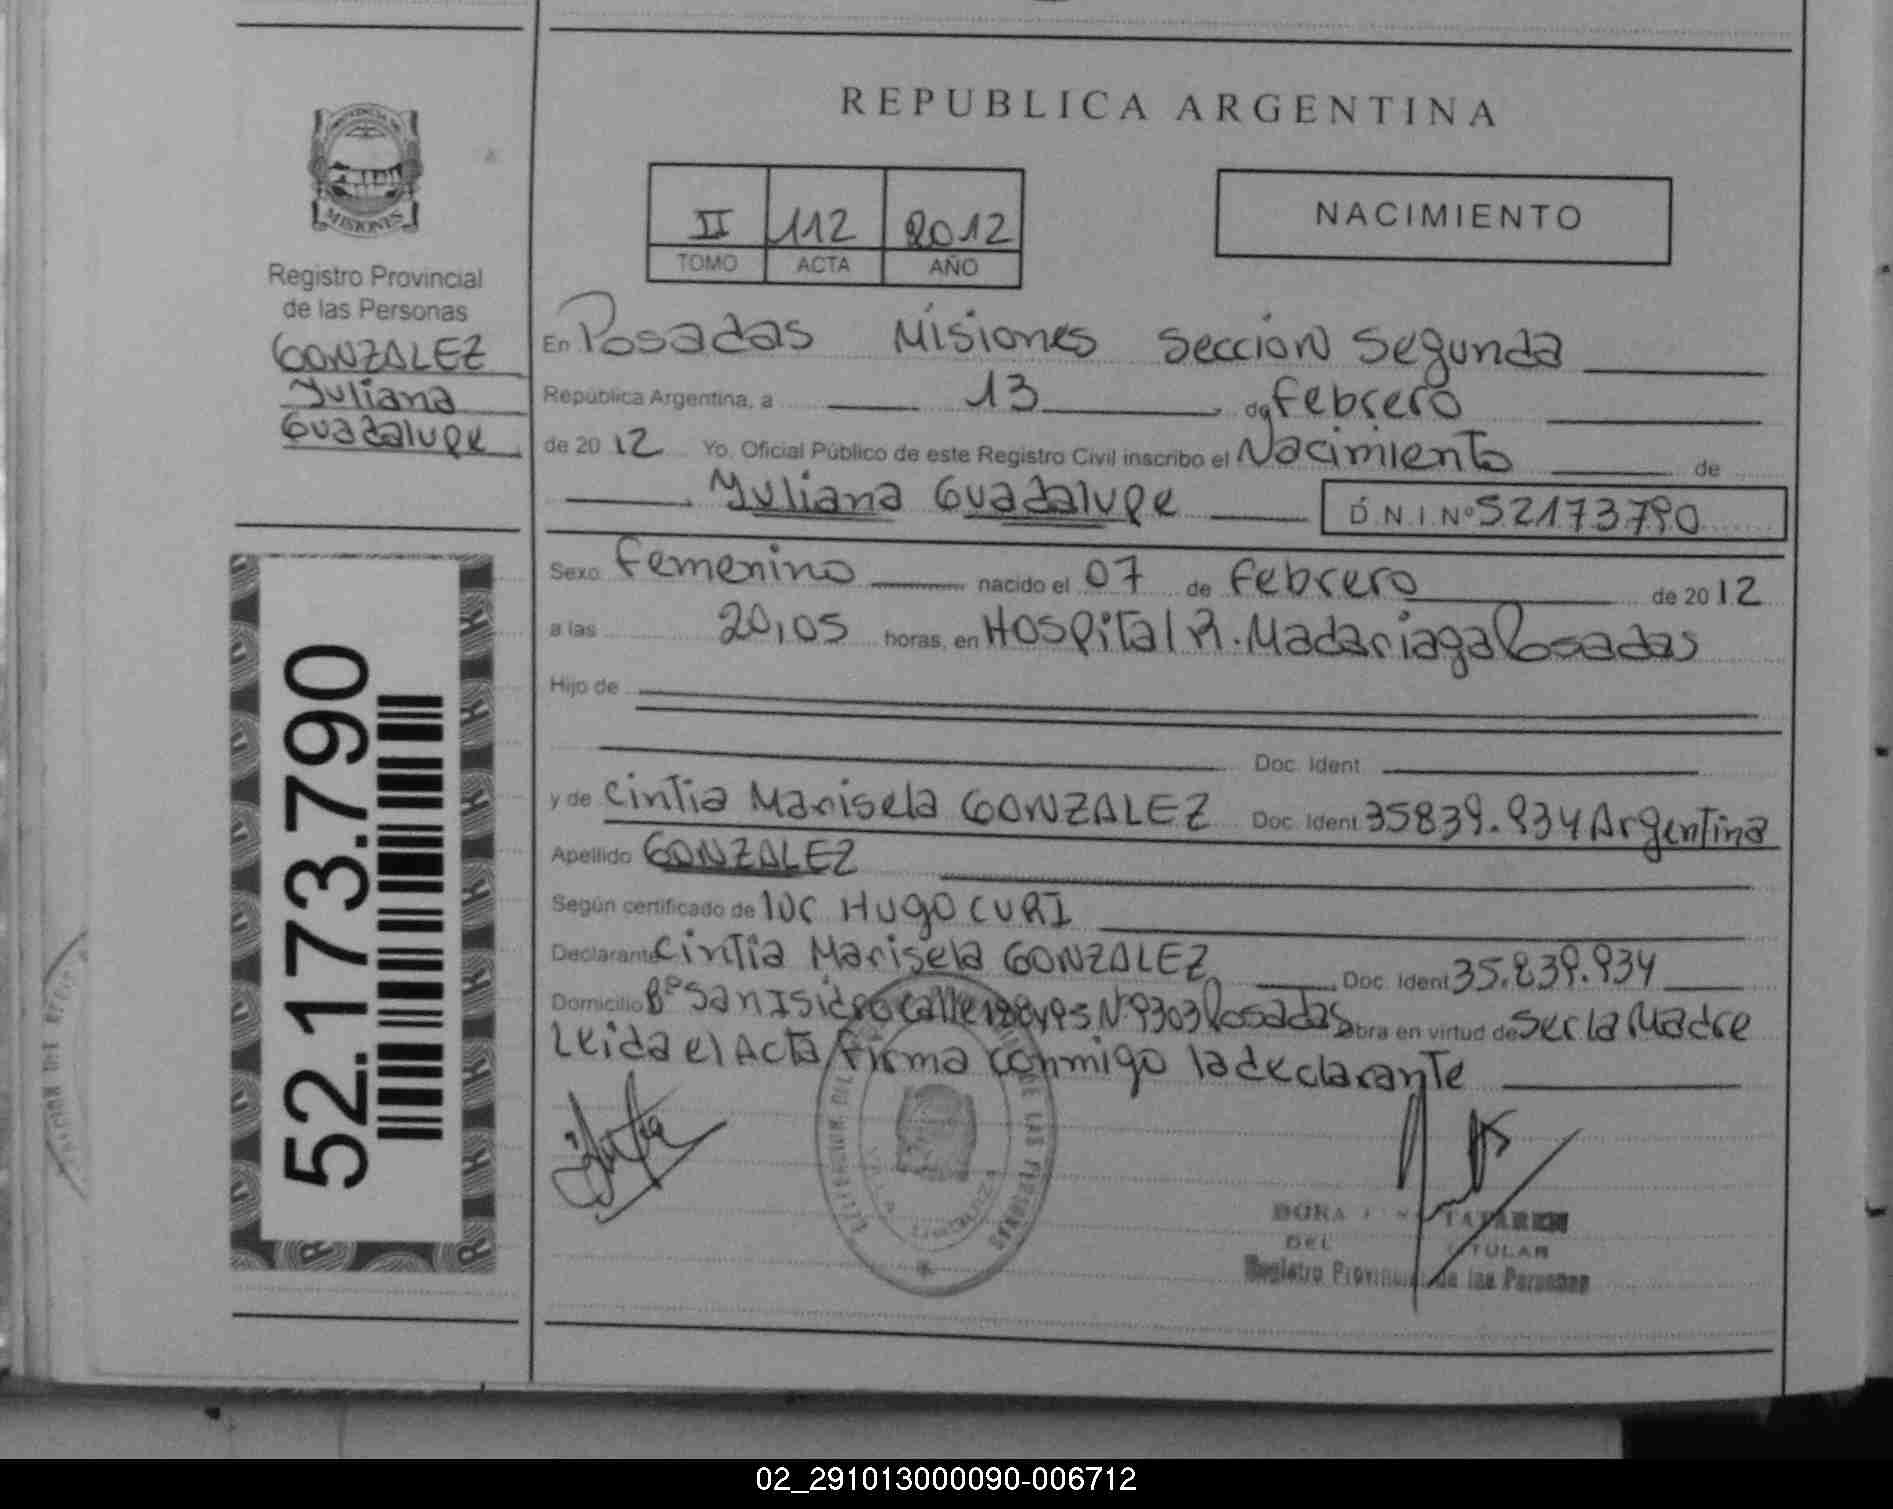 REPUBLICA ARGENTINA
PROVINCIA DE
MISIONES
Registro Provincial
de las Personas
GONZALEZ
Yuliana
Guadalupe
52.173.790
II 112 2012
TOMO ACTA AÑO
NACIMIENTO
En Posadas Misiones Sección Segunda
República Argentina, a 13 de Febrero
de 20 12 Yo, Oficial Público de este Registro Civil inscribo el Nacimiento de
Yuliana Guadalupe D.N.I. Nº 52173790
Sexo Femenino nacido el 07 de Febrero de 20 12
a las 20,05 horas, en Hospital R. Madariaga Posadas
Hijo de
Doc. Ident.
y de Cintia Marisela GONZALEZ Doc. Ident. 35839.934 Argentina
Apellido GONZALEZ
Según certificado de HUGO CURI
Declarante Cintia Marisela GONZALEZ Doc. Ident 35.839.934
Domicilio Bº San Isidro Calle Nº 9303 Posadas obra en virtud de ser la Madre
Leida el Acta firma conmigo la declarante
DE LAS PERSONAS
TITULAR
Registro Provincial de las Personas
02_291013000090-006712